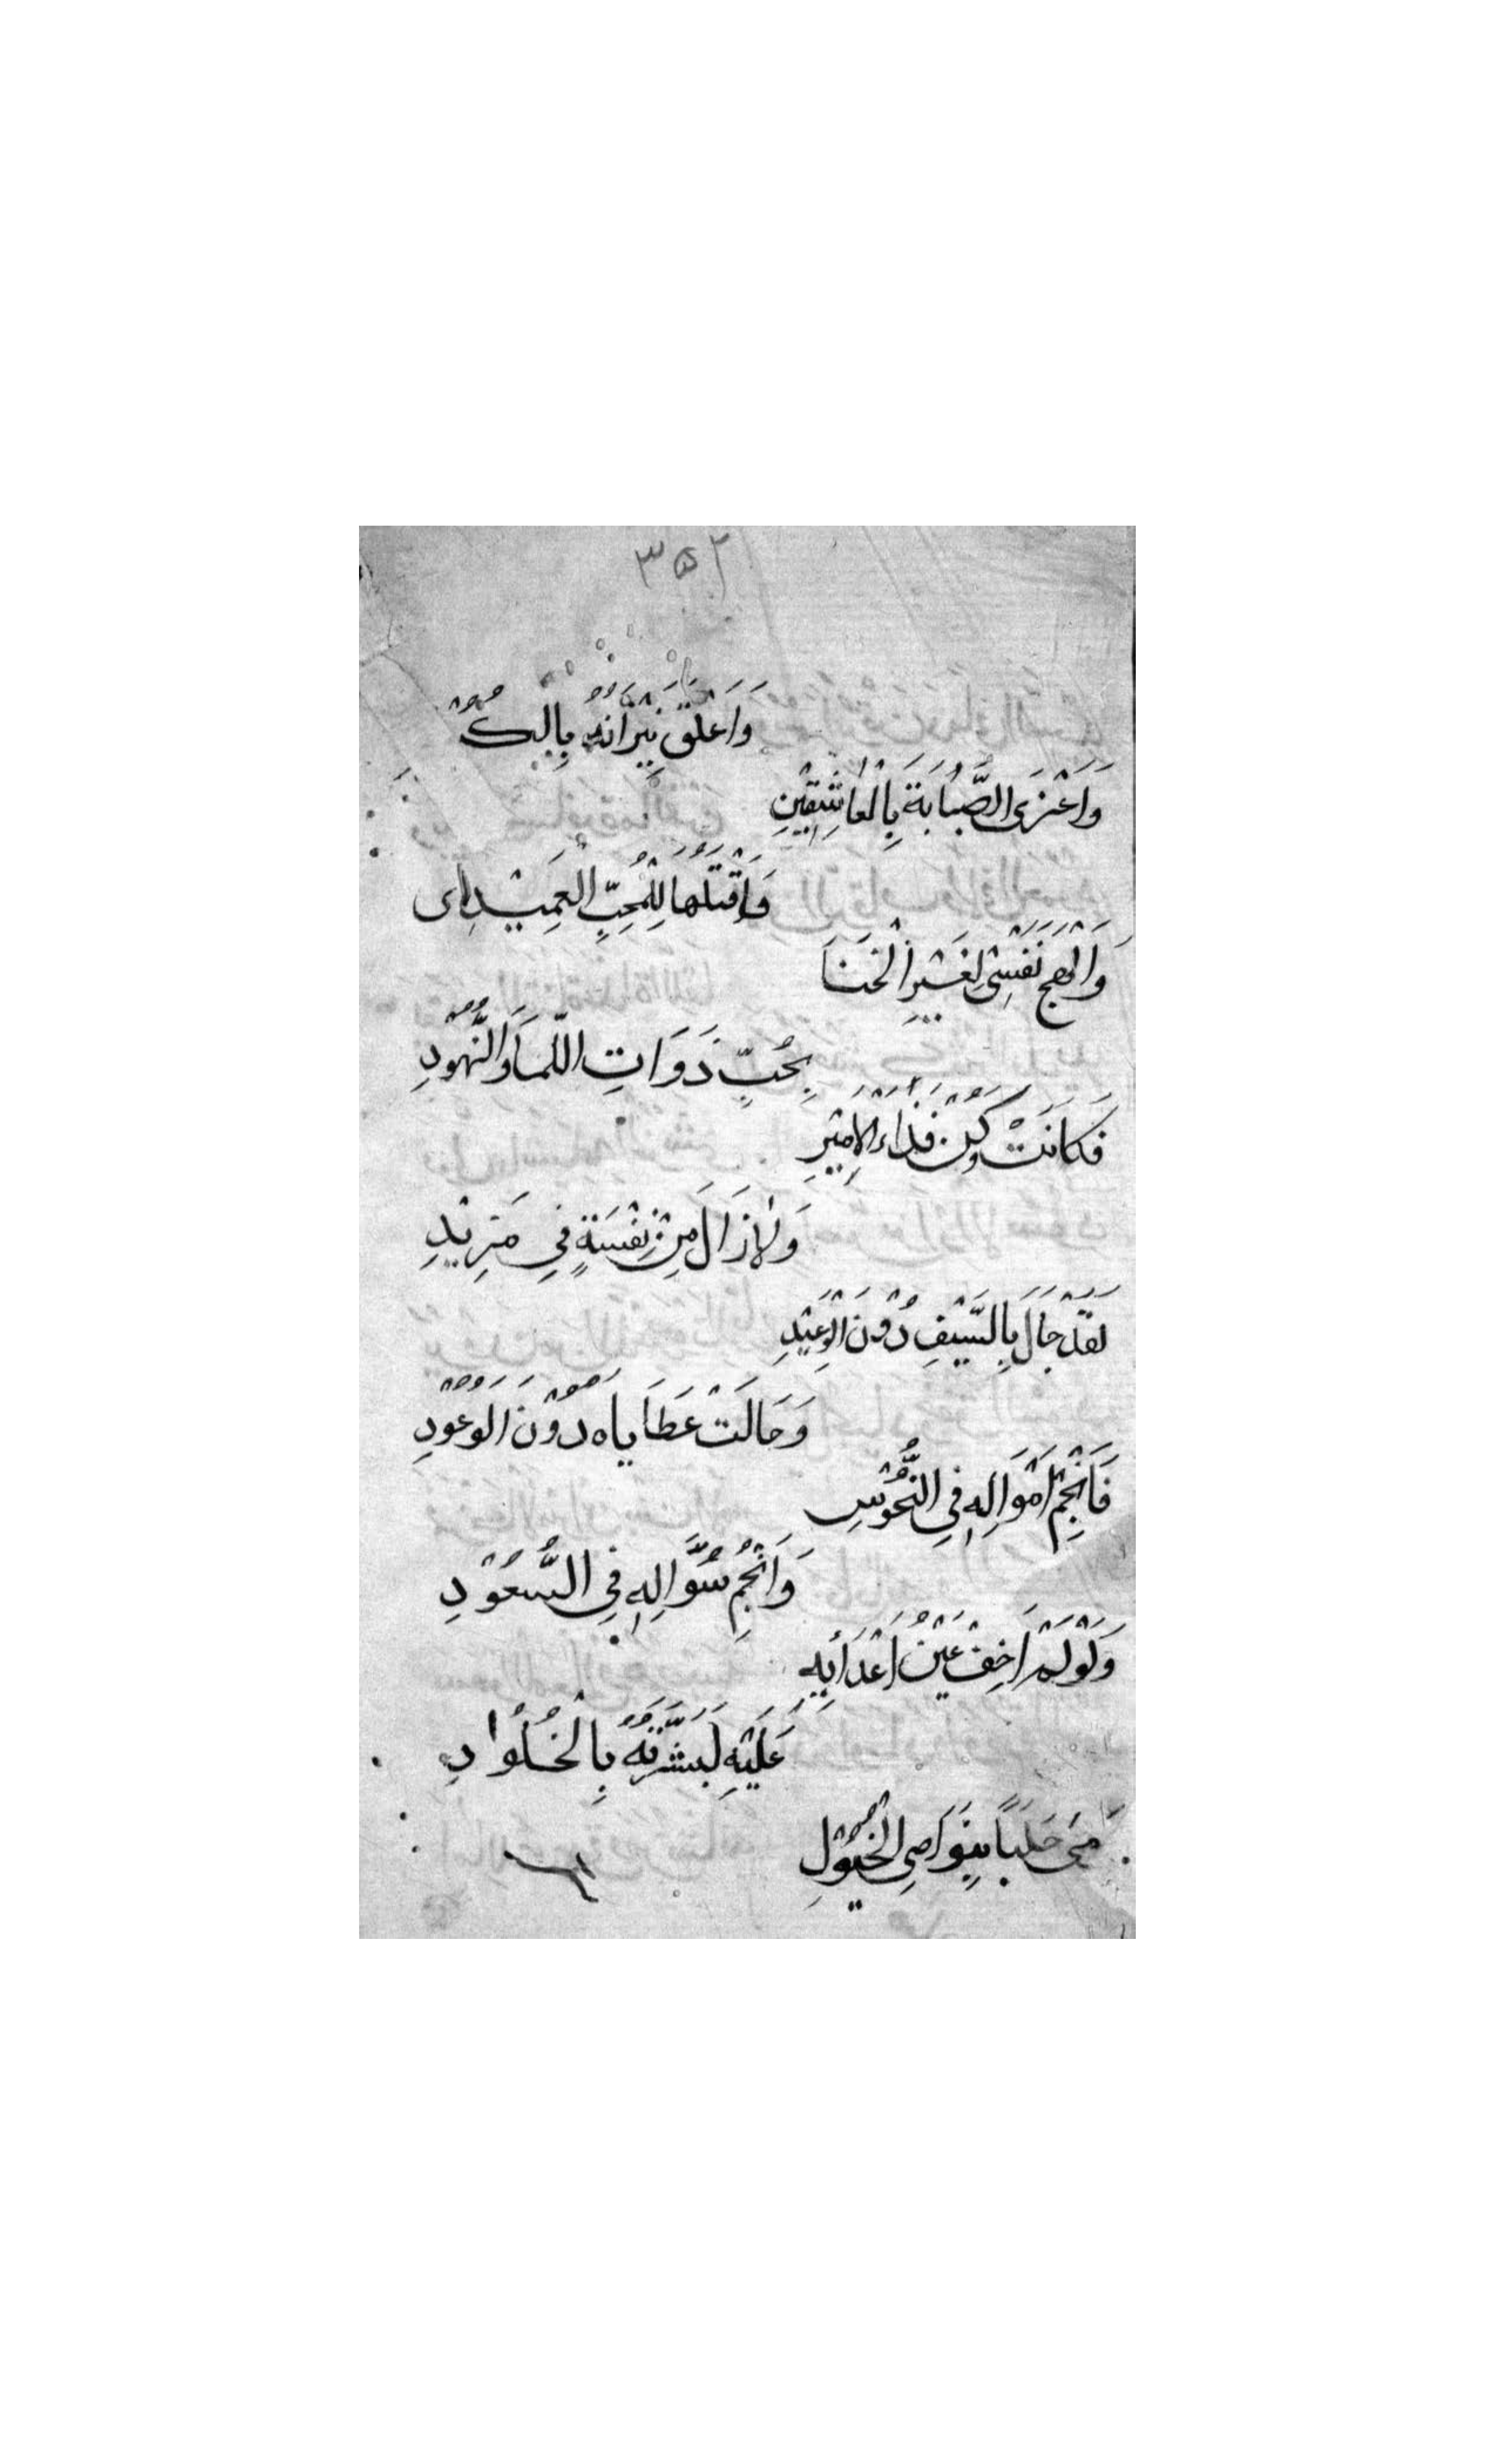 ٣٥٢
وَاَعْلَقَ نِيْرَانَهُ بِالكبُوْدِ
وَاَغْرَى الصَّبَابَةَ بِالْعَاشِقِيْنِ
وَاَقْتَلَهَا لِلْمُحِبِّ الْعَمِيْدِ
وَاَلْهَجَ نَفْسِيْ لِغَيْرِ الْخَنَا
بِحُبِّ ذَوَاتِ اللَّمَا وَالنُّهُوْدِ
فَكَانَتْ وَكُنَّ فِدَاءَ الاَمِيْرِ
وَلَا زَالَ مِنْ نِعْمَةٍ فِي مَزِيْدِ
لَقَدْ حَالَ بِالسَّيْفِ دُوْنَ الْوَعِيْدِ
وَحَالَتْ عَطَايَاه دُوْنَ الْوعُوْدِ
فَاَنْجُمُ اَمْوَالِهِ فِي النُّحُوْسِ
وَاَنْجُمُ سُوَّالِهِ فِي السُّعُوْدِ
وَلَوْ لَمْ اَخِفْ عَيْنَ اَعْدَائِهِ
عَلَيْهِ لَبَشَّرْتُهُ بِالْخُلُوْدِ
رَمَى حَلَبًا بِنَوَاصِي الْخُيُوْلِ